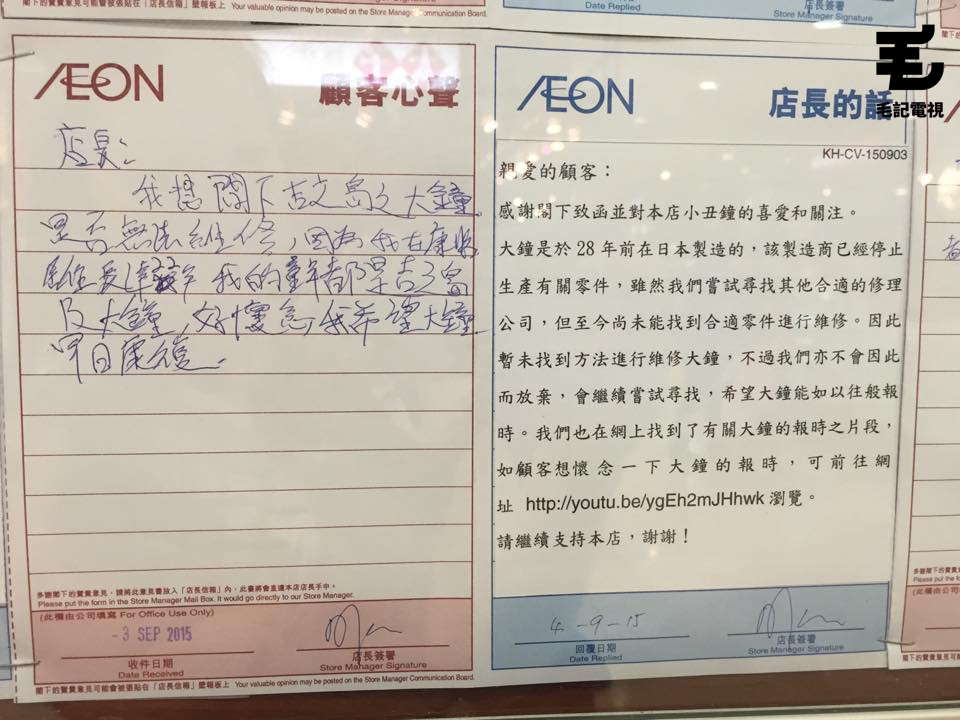 閣下的寶貴意見可能會被張貼在「店長信箱」壁報板上 Your valuable opinion may be posted on the Store Manager Communication Board.
Date Replied
店長簽署
Store Manager Signature
毛記電視
AEON
顧客心聲
店長:
大鐘
是否無法維修,因為我在康
我的童年都是
及大鐘,好懷念,我希望大鐘
早日康復.
多謝閣下的寶貴意見,請將此意見書放入「店長信箱」內,此書將會直達本店店長手中。
Please put the form in the Store Manager Mail Box. It would go directly to our Store Manager.
(此欄由公司填寫 For Office Use Only)
- 3 SEP 2015
收件日期
Date Received
店長簽署
Store Manager Signature
閣下的寶貴意見可能會被張貼在「店長信箱」壁報板上 Your valuable opinion may be posted on the Store Manager Communication Board.
AEON
店長的話
KH-CV-150903
親愛的顧客:
感謝閣下致函並對本店小丑鐘的喜愛和關注。
大鐘是於 28 年前在日本製造的,該製造商已經停止
生產有關零件,雖然我們嘗試尋找其他合適的修理
公司,但至今尚未能找到合適零件進行維修。因此
暫未找到方法進行維修大鐘,不過我們亦不會因此
而放棄,會繼續嘗試尋找,希望大鐘能如以往般報
時。我們也在網上找到了有關大鐘的報時之片段,
如顧客想懷念一下大鐘的報時,可前往網
址 http://youtu.be/ygEh2mJHhwk 瀏覽。
請繼續支持本店,謝謝!
4-9-15
回覆日期
Date Replied
店長簽署
Store Manager Signature